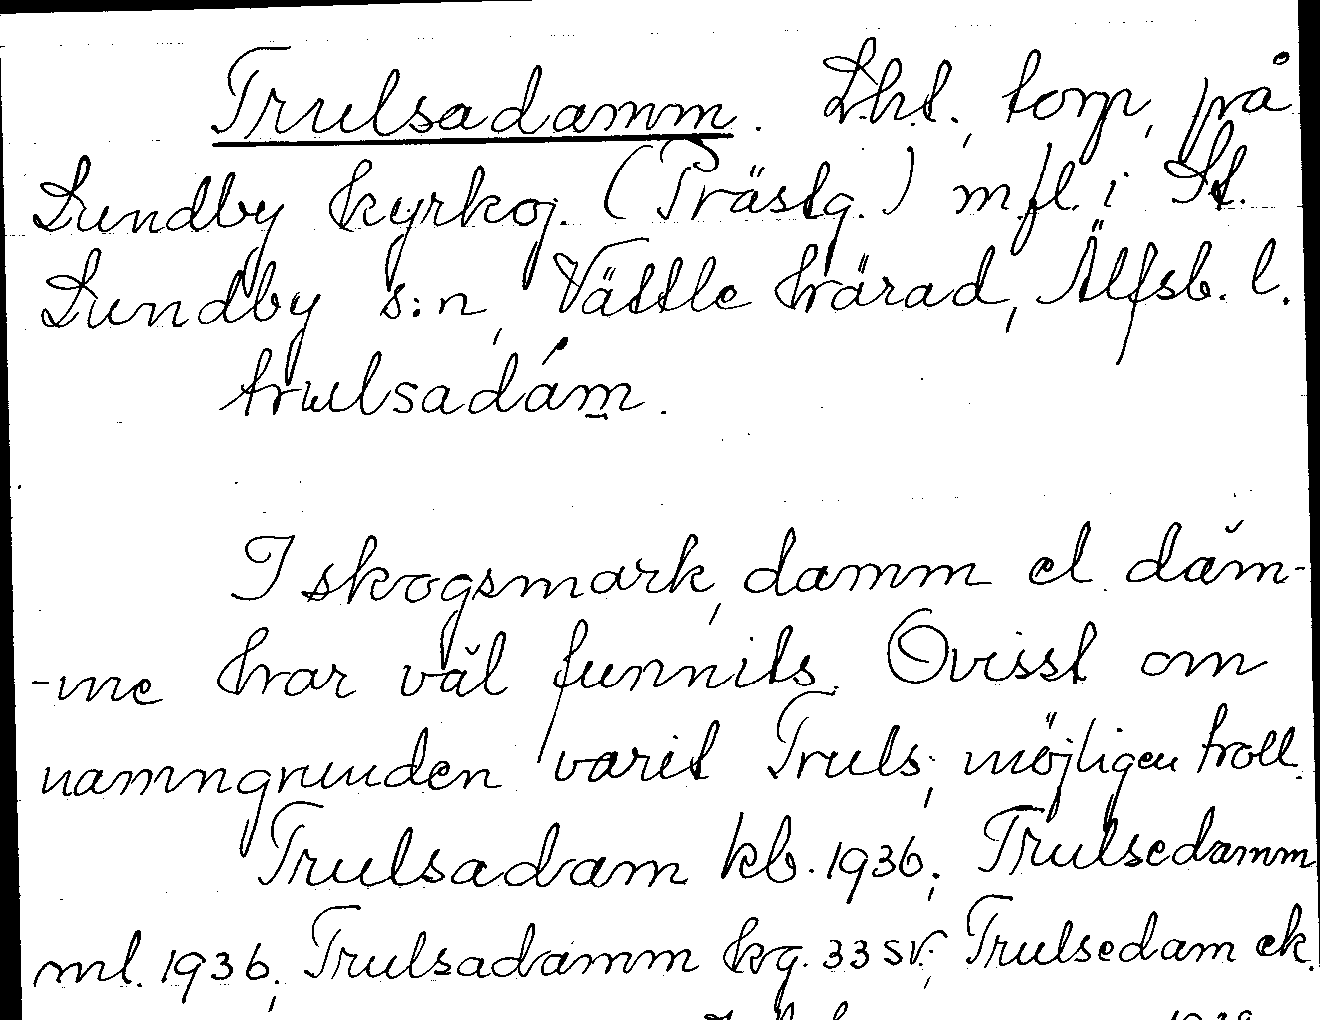 Trulsadamm. Lht., torp, på
Lundby kyrkoj. (Prästg.) mfl. i St.
Lundby s:n, Vättle härad, Älfsb. l.
trulsadám.
I skogsmark, damm el. däm-
-me har väl funnits. Ovisst om
namngrunden varit Truls; möjligen troll.
Trulsadam kb. 1936; Trulsedamm
ml. 1936; Trulsadamm hg. 33 SV.; Trulsedam ek.